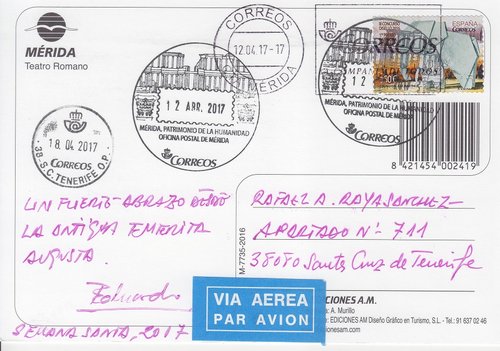 MÉRIDA
Teatro Romano
CORREOS
12.04.17-17
MÉRIDA
12 ABR. 2017
MÉRIDA, PATRIMONIO DE LA HUMANIDAD
OFICINA POSTAL DE MÉRIDA
CORREOS
ESPAÑA
CORREOS
12
MÉRIDA, PATRIMONIO DE LA HUMANIDAD
OFICINA POSTAL DE MÉRIDA
CORREOS
8 421454 002419
18 04 2017
CORREOS
38-S.C. TENERIFE O.P.
UN FUERTE ABRAZO DESDE
LA ANTIGUA EMERITA
AUGUSTA.
Eduardo
SEMANA SANTA, 2017
RAFAEL A. RAYA SANCHEZ
APARTADO Nº 711
38080 Santa Cruz de Tenerife
M-7735-2016
VIA AEREA
PAR AVION
EDICIONES A.M.
A. Murillo
EDICIONES AM Diseño Gráfico en Turismo, S.L. - Tel.: 91 637 02 46